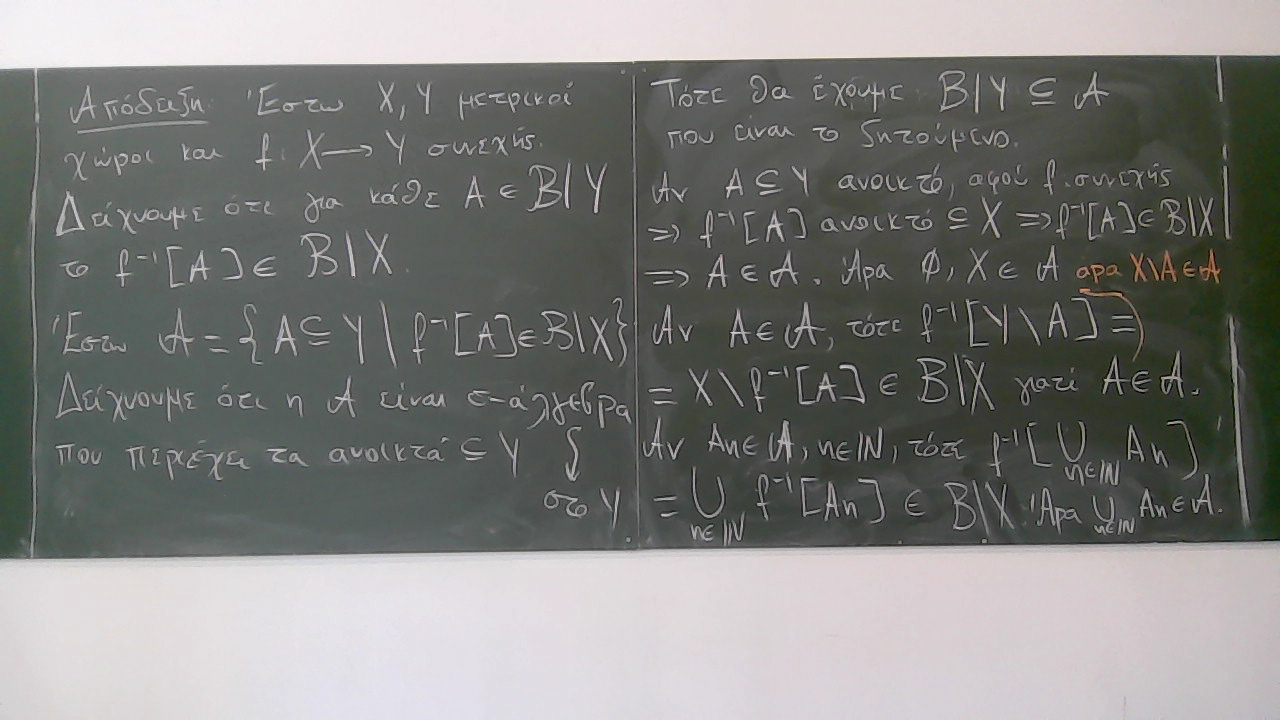 Απόδειξη: Έστω X, Y μετρικοί
χώροι και f: X → Y συνεχής.
Δείχνουμε ότι για κάθε A ∈ B|Y
το f⁻¹[A] ∈ B|X.
Έστω 𝒜 = {A ⊆ Y | f⁻¹[A] ∈ B|X}
Δείχνουμε ότι η 𝒜 είναι σ-άλγεβρα
που περιέχει τα ανοικτά ⊆ Y
στο Y
Τότε θα έχουμε B|Y ⊆ 𝒜
που είναι το ζητούμενο.
Αν A ⊆ Y ανοικτό, αφού f συνεχής
⇒ f⁻¹[A] ανοικτό ⊆ X ⇒ f⁻¹[A] ∈ B|X
⇒ A ∈ 𝒜. Άρα ∅, X ∈ 𝒜 άρα X\A ∈ 𝒜
Αν A ∈ 𝒜, τότε f⁻¹[Y\A] =
= X\f⁻¹[A] ∈ B|X γιατί A ∈ 𝒜.
Αν An ∈ 𝒜, n∈ℕ, τότε f⁻¹[⋃n∈ℕ An]
= ⋃n∈ℕ f⁻¹[An] ∈ B|X. Άρα ⋃n∈ℕ An ∈ 𝒜.